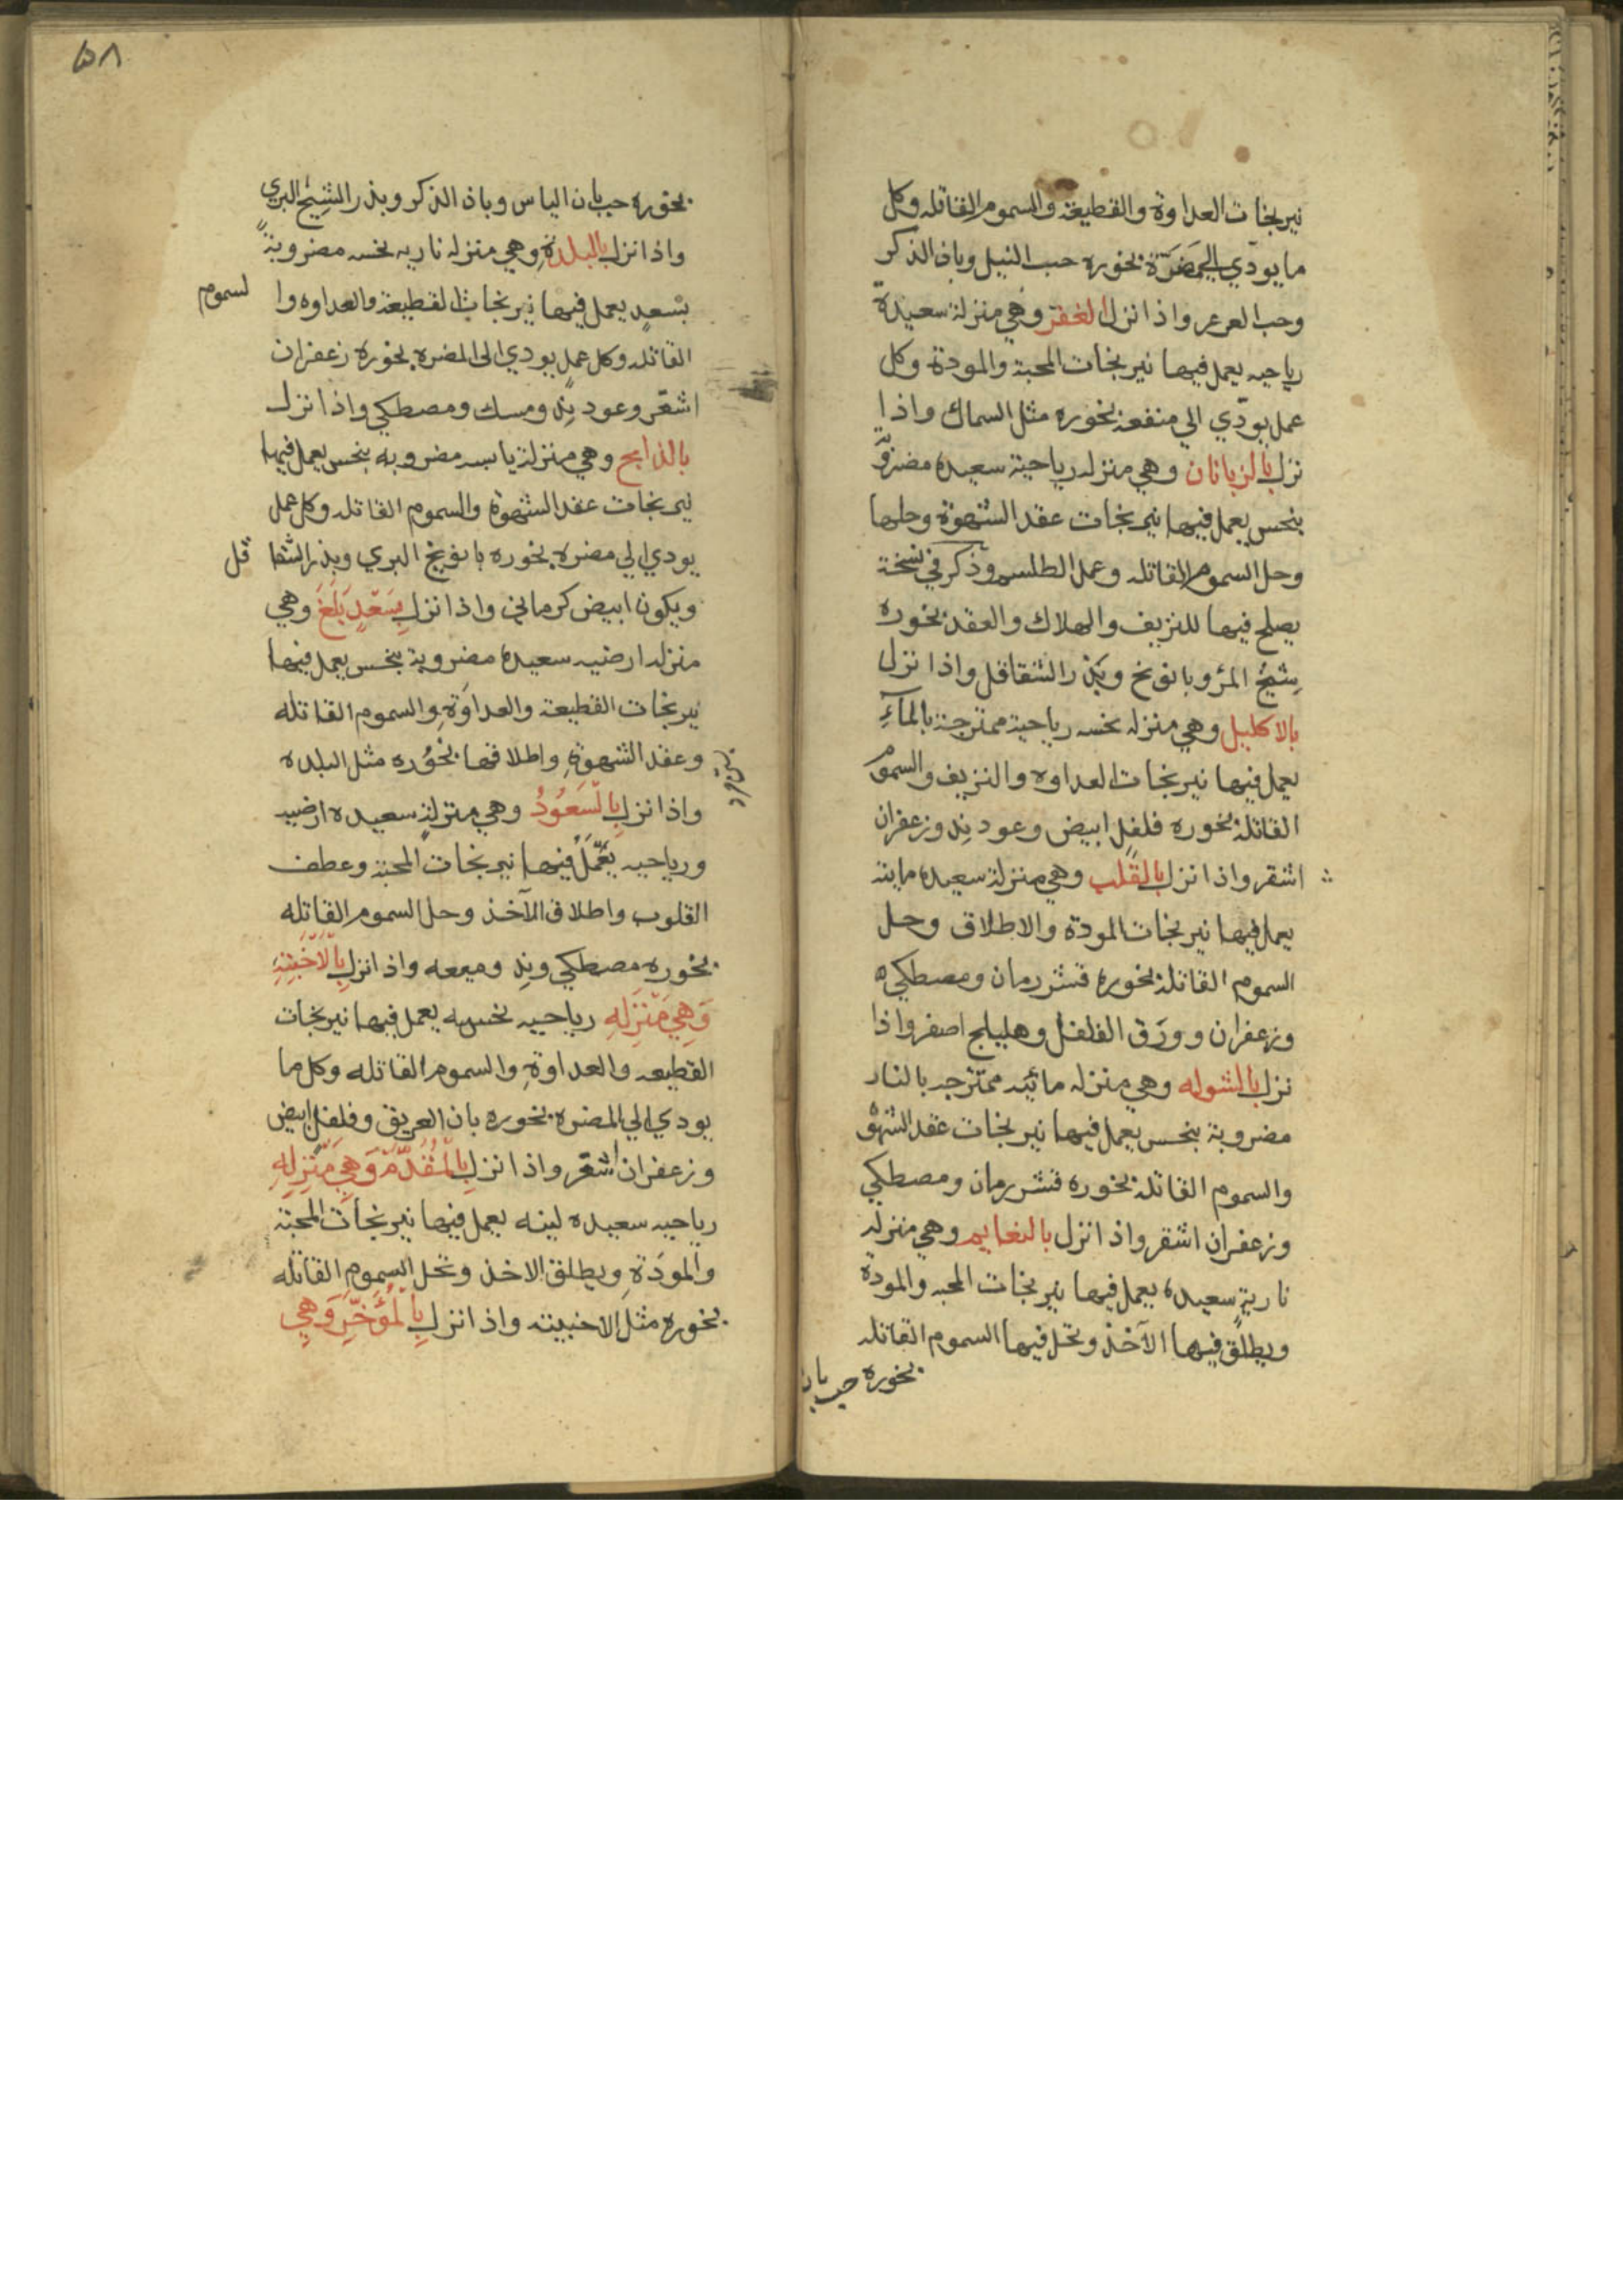 نيرنجات العداوة والقطيعة والسموم القاتله وكل
ما يودي الي مضرة بخوره حب النيل وبان الذكر
وحب العرعر واذا نزل الغفر وهي منزلة سعيدة
رياحيه يعمل فيها نيرنجات المحبة والمودة وكل
عمل يودي الي منفعة بخوره مثل السماك واذا
نزل بالزبانان وهي منزله رياحية سعيده مضروبة
بنحس يعمل فيها نيرنجات عقد الشهوة وحلها
وحل السموم القاتله وعمل الطلسم وذكر في نسخة
يصلح فيها للنزيف والهلاك والعقد بخوره
شيح المر وبانونخ وبذر الشقاقل واذا نزل
بالاكليل وهي منزله نحسه رياحية ممتزجة بالمآء
يعمل فيها نيرنجات العداوه والنزيف والسموم
القاتلة بخوره فلفل ابيض وعود ند وزعفران
اشقر واذا نزل بالقلب وهي منزلة سعيده ماية
يعمل فيها نيرنجات المودة والاطلاق وحل
السموم القاتلة بخوره قشر رمان ومصطكي
وزعفران وورق الفلفل وهليلج اصفر واذا
نزل بالشوله وهي منزله مائيه ممتزجه بالنار
مضروبة بنحس يعمل فيها نيرنجات عقد الشهوة
والسموم القاتلة بخوره قشر رمان ومصطكي
وزعفران اشقر واذا نزل بالنعايم وهي منزله
نارية سعيده يعمل فيها نيرنجات المحبه والمودة
ويطلق فيها الآخذ وتحل فيها السموم القاتله
بخوره حب بان
٥٨
بخوره حب بان الياس وباذ الذكر وبذر الشيح البري
واذا نزل بالبلدة وهي منزله ناريه نحسه مضروبة
بسعد يعمل فيها نيرنجات القطيعة والعداوه وا لسموم
القاتله وكل عمل يودي الى المضره بخوره زعفران
اشقر وعود ند ومسك ومصطكي واذا نزل
بالذابح وهي منزلة يابسه مضروبه بنحس يعمل فيها
نيرنجات عقد الشهوة والسموم القاتله وكل عمل
يودي الي مضره بخوره بابونج البري وبذر الشقا قل
ويكون ابيض كرماني واذا نزل بسعد بلغ وهي
منزله ارضيه سعيده مضروبة بنحس يعمل فيها
نيرنجات القطيعة والعداوة والسموم القاتله
وعقد الشهوة واطلاقها بخوره مثل البلده
واذا نزل بالسعود وهي منزلة سعيده ارضيه
ورياحيه يعمل فيها نيرنجات المحبة وعطف
القلوب واطلاق الآخذ وحل السموم القاتله
بخوره مصطكي وند وميعه واذا نزل بالاخبية
وهي منزله رياحيه نحسه يعمل فيها نيرنجات
القطيعه والعداوة والسموم القاتله وكل ما
يودي الي المضره بخوره بان العريق وفلفل ابيض
وزعفران اشقر واذا نزل بالمقدم وهي منزله
رياحيه سعيده لينه يعمل فيها نيرنجات المحبة
والمودة ويطلق الاخذ وتحل السموم القاتله
بخوره مثل الاخبيته واذا نزل بالمؤخر وهي